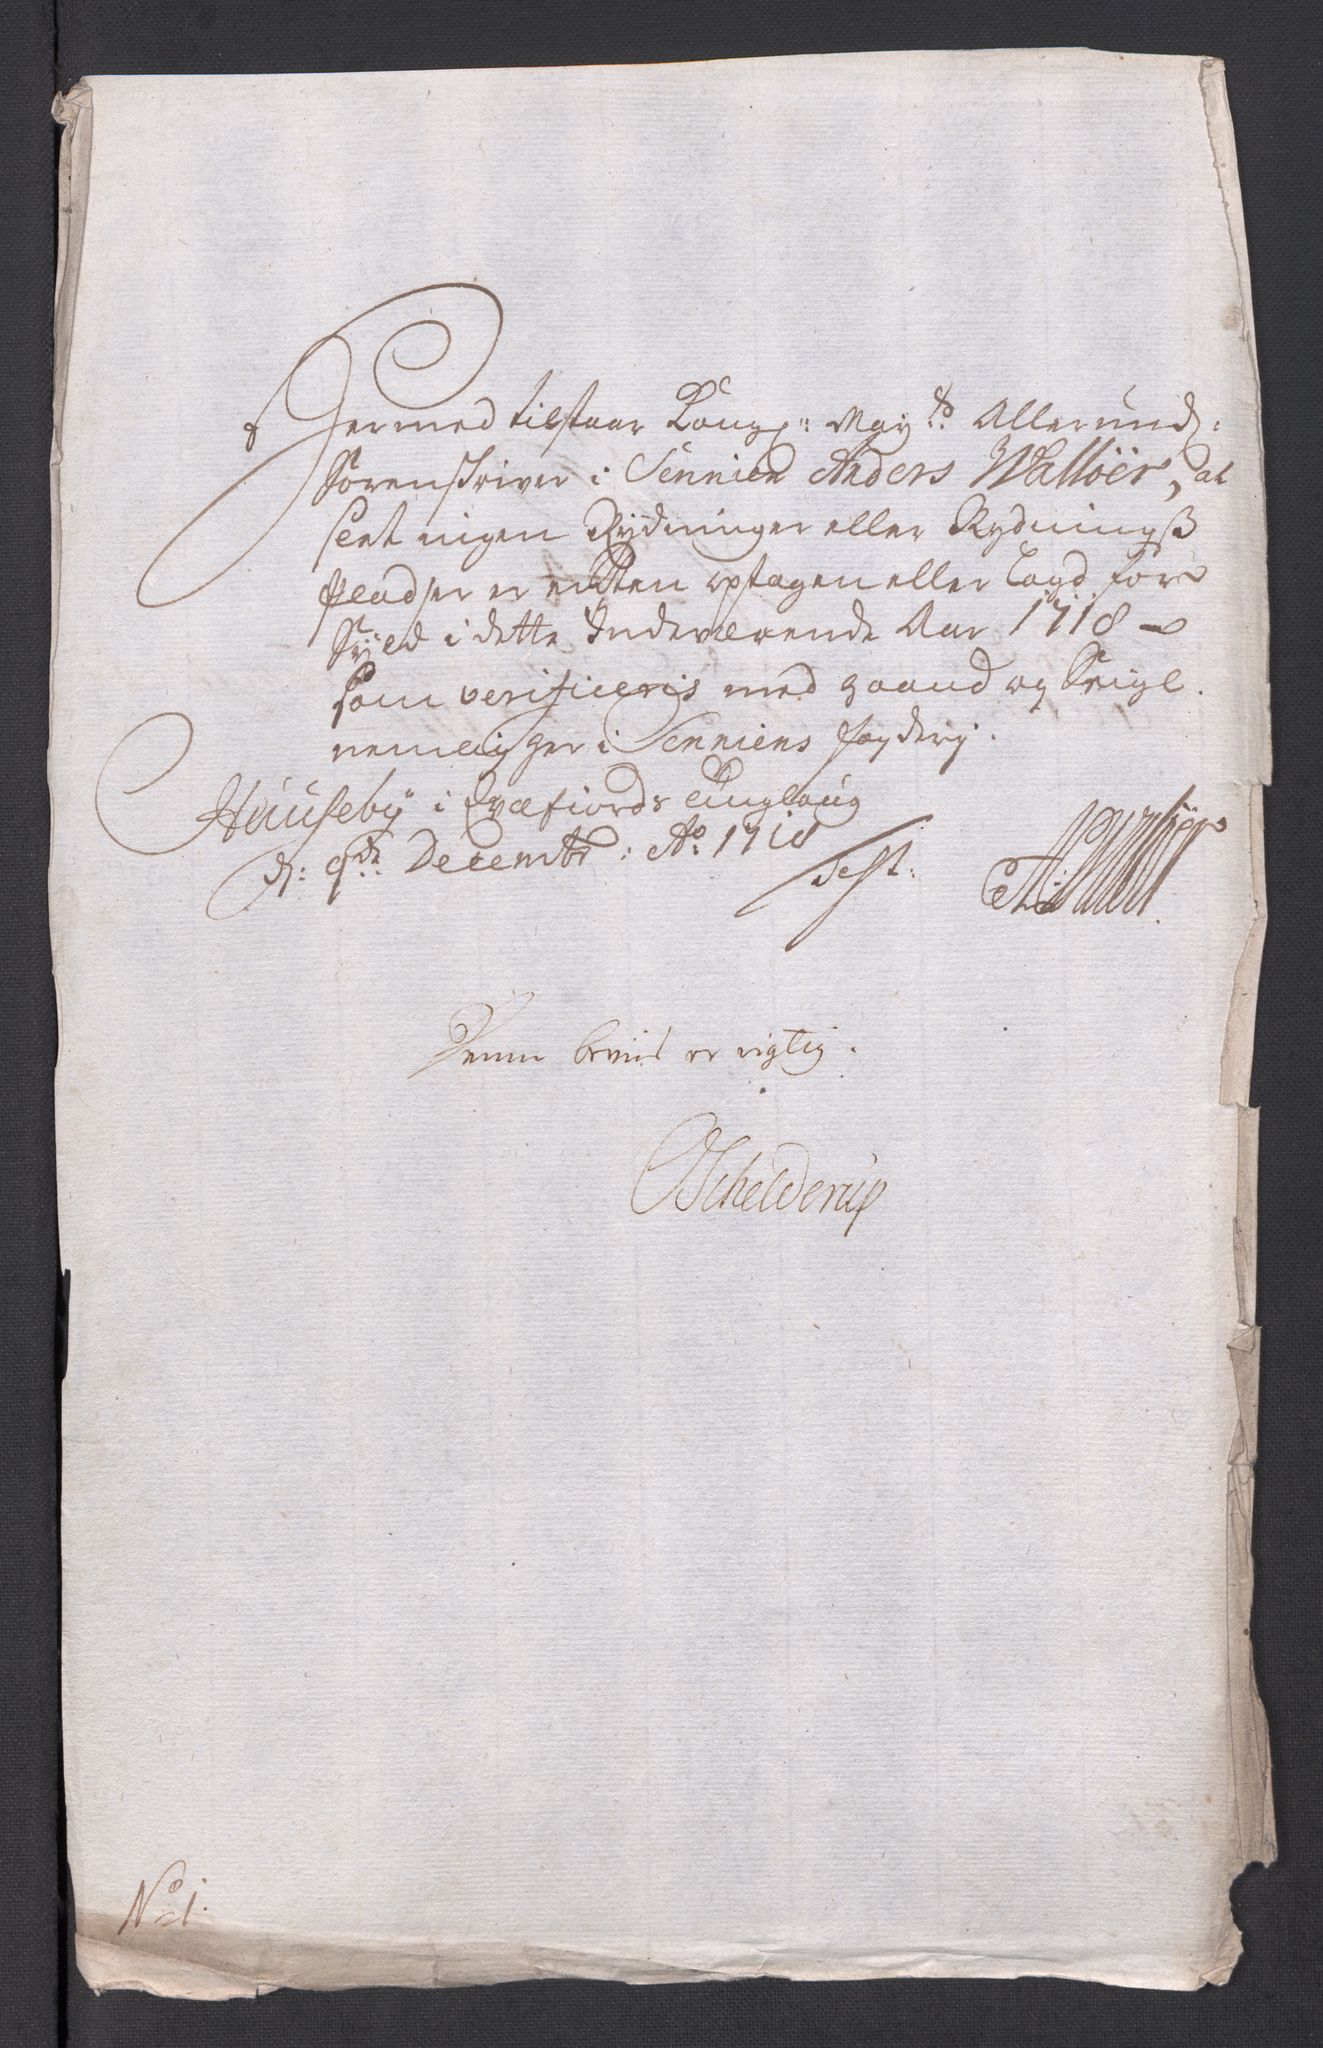 Hermed tilstaar Kongl: May:ts Allerund:
Sorenskriver i Sennien Anders Walløer, at
slet ingen Rydninger eller Rydningß
pladser er enten optagen eller lagd for
Skyld i dette Indeværende Aar 1718
som verificeris med Haand og Seigl.
nemlig her i Senniens fogderij.
Hunsebÿ i Qvæfiords tinglaug
d: 9de Decembr: Ao 1718
Test:
A: Walløer
Denne beviis er rigtig.
OSchelderup
No 1.